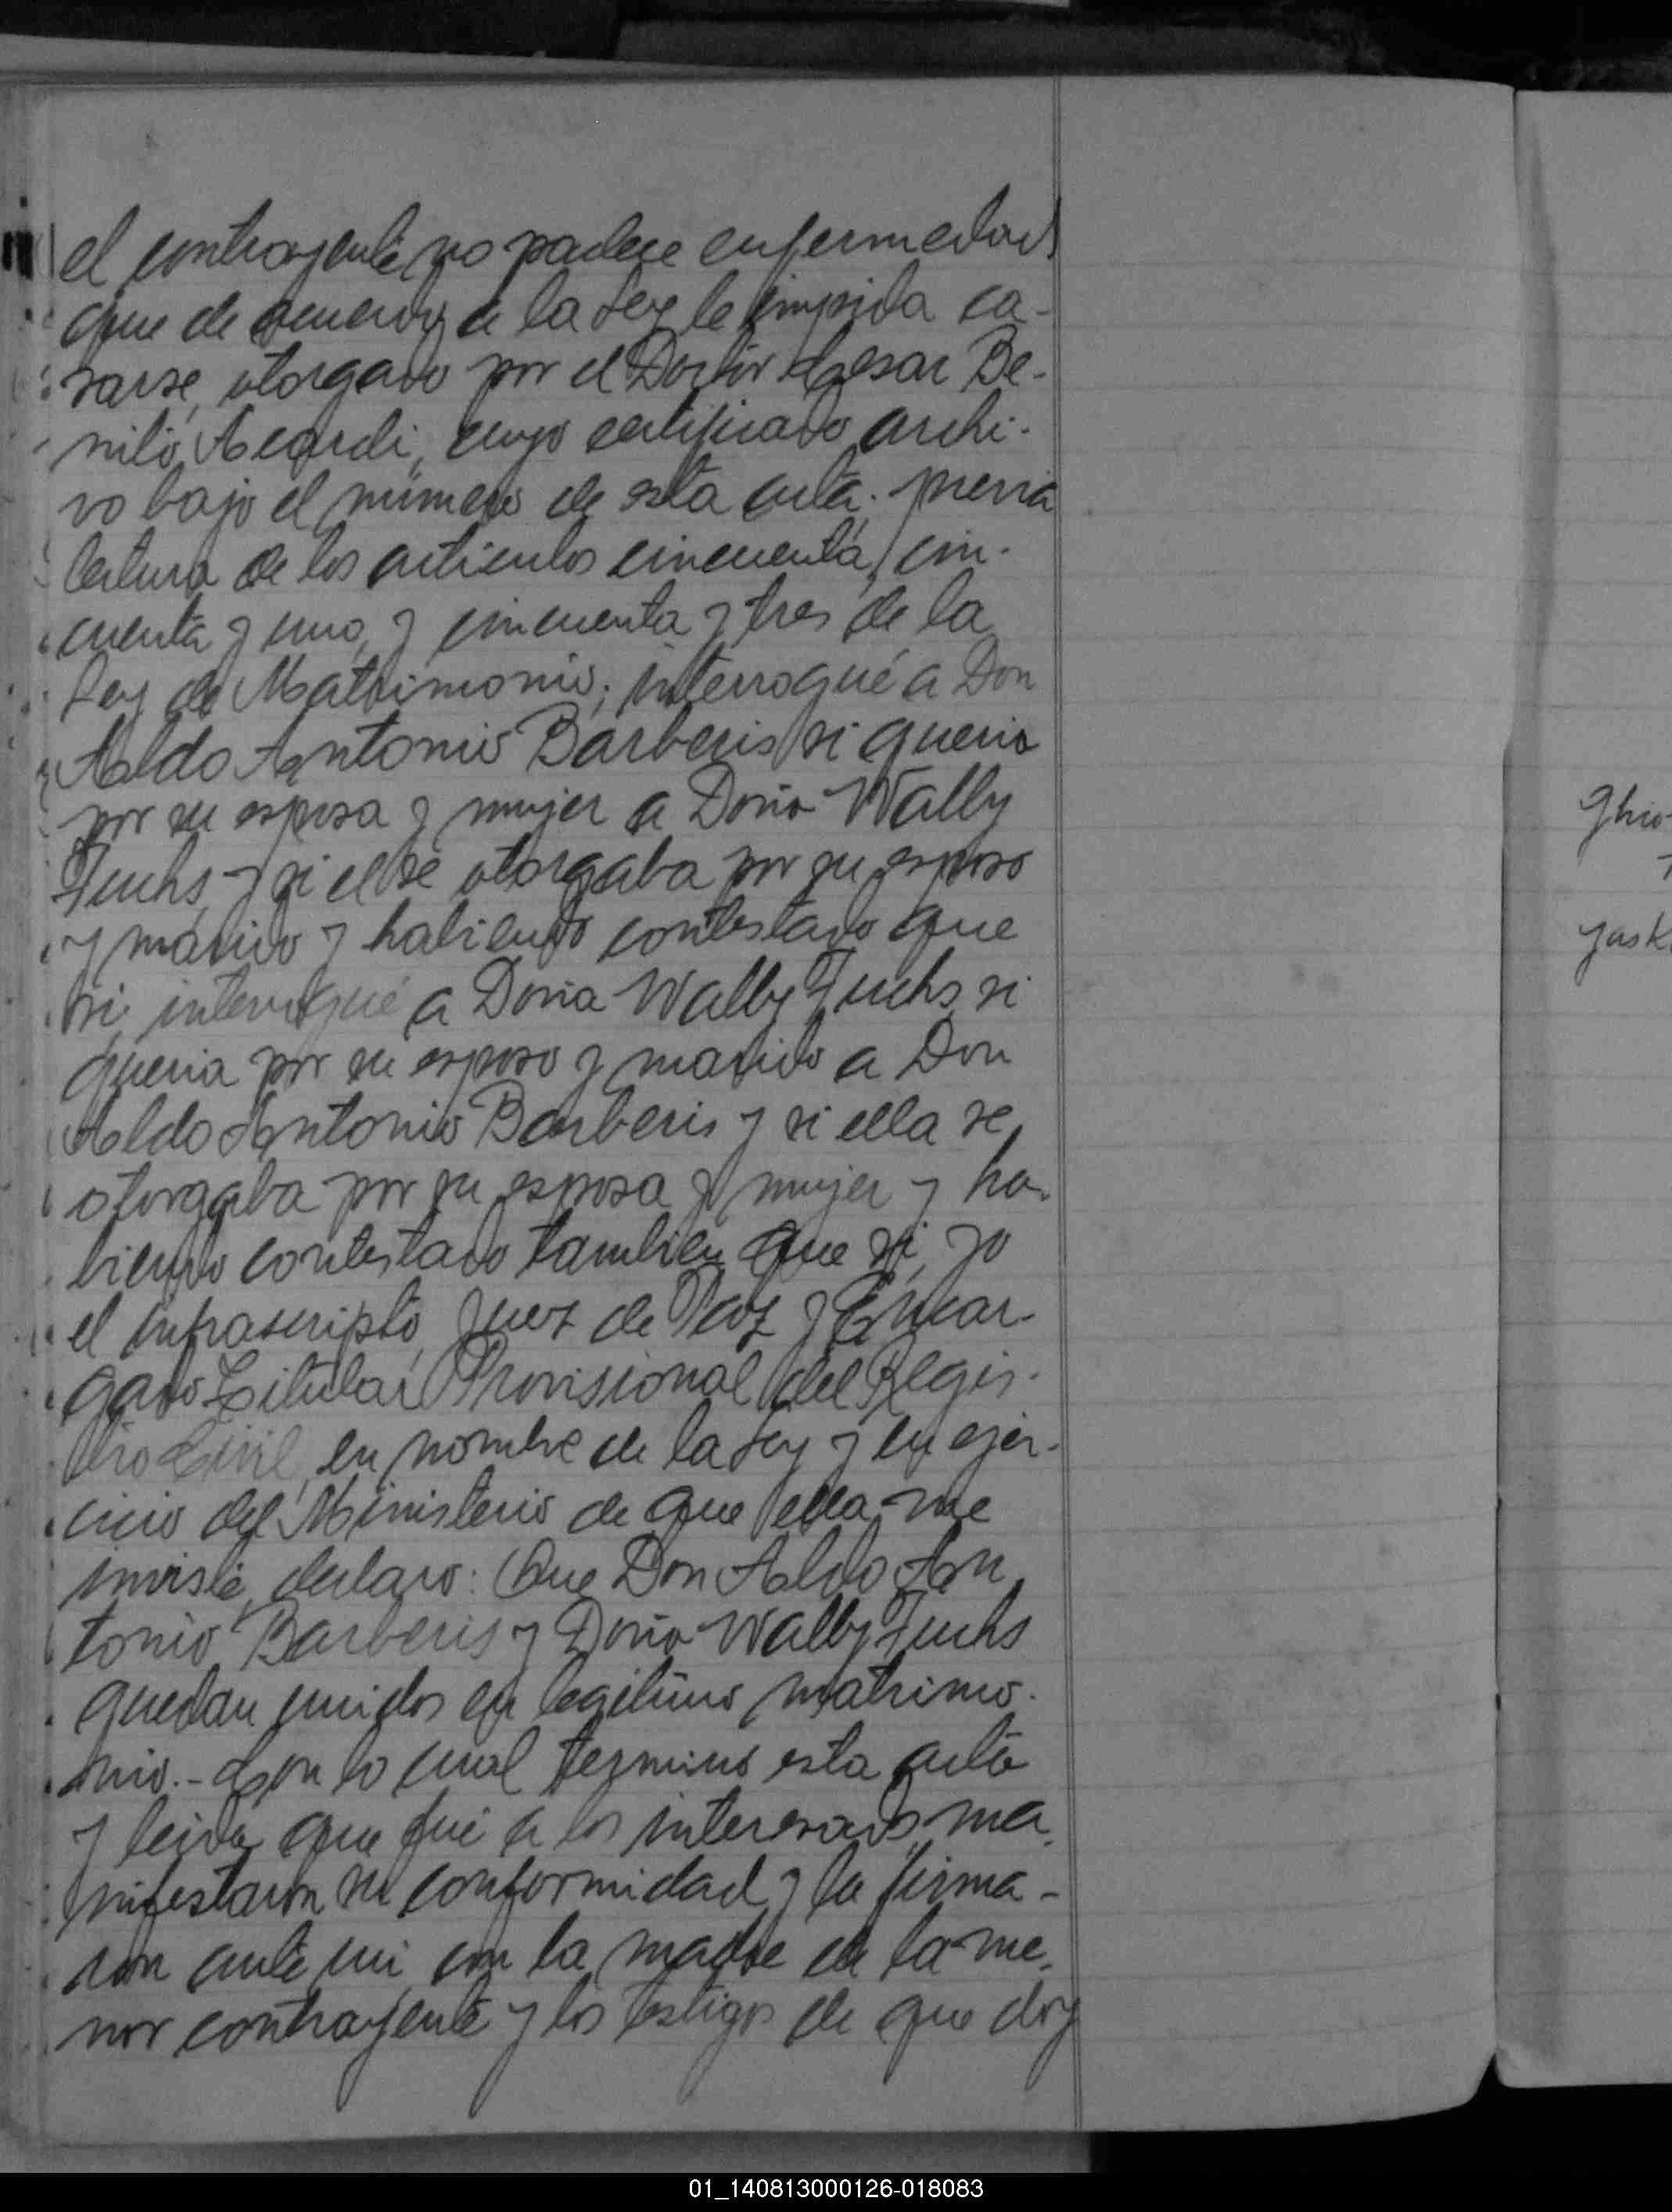 el contrayente no padece enfermedad
que de acuerdo a la Ley le impida ca-
sarse, otorgado por el Doctor Cesar Be-
nito Acardi, cuyo certificado archi-
vo bajo el número de esta acta. previa
lectura de los articulos cincuenta, cin-
cuenta y uno, y cincuenta y tres de la
Ley de Matrimonio; interrogué a Don
Aldo Antonio Barberis si queria
por su esposa y mujer a Doña Wally
Fuchs y si el se otorgaba por su esposo
y marido y habiendo contestado que
si, interrogué a Doña Wally Fuchs si
queria por su esposo y marido a Don
Aldo Antonio Barberis y si ella se
otorgaba por su esposa y mujer y ha-
biendo contestado tambien que si, yo
el infrascripto, Juez de Paz y Encar-
gado Titular Provisional del Regis-
tro Civil, en nombre de la Ley y en ejer-
cicio del Ministerio de que ella me
inviste, declaro: Que Don Aldo An
tonio Barberis y Doña Wally Fuchs
quedan unidos en legitimo matrimo-
nio.- Con lo cual termino esta acta
y leida que fué a los interesados, ma-
nifestaron su conformidad y la firma-
ron ante mi con la madre de la me-
nor contrayente y los testigos de que doy
Ghio
yask
01_140813000126-018083